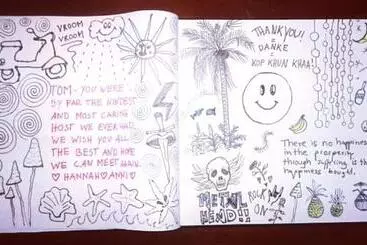 VROOM
VROOM
TOM - YOU WERE
BY FAR THE KINDEST
AND MOST CARING
HOST WE EVER HAD
WE WISH YOU ALL
THE BEST AND HOPE
WE CAN MEET AGAIN
♡ HANNAH ♡ ANNI ♡
THANK YOU!
=
DANKE
=
KOP KHUN KHAA!
There is no happiness
in the prosperity,
through suffering is the
happiness bought.
METAL
HEAD!!
ROCK
ON